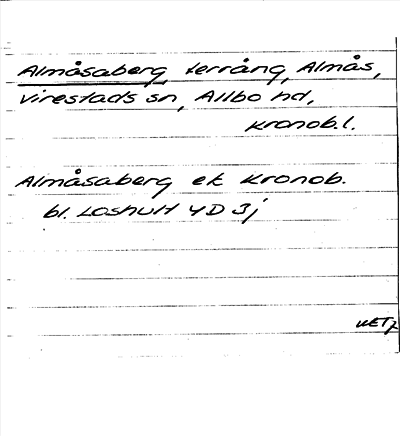 Almåsaberg, terräng, Almås,
Virestads sn, Allbo hd,
Kronob. l.
Almåsaberg ek Kronob.
bl. Loshult 4D 3j